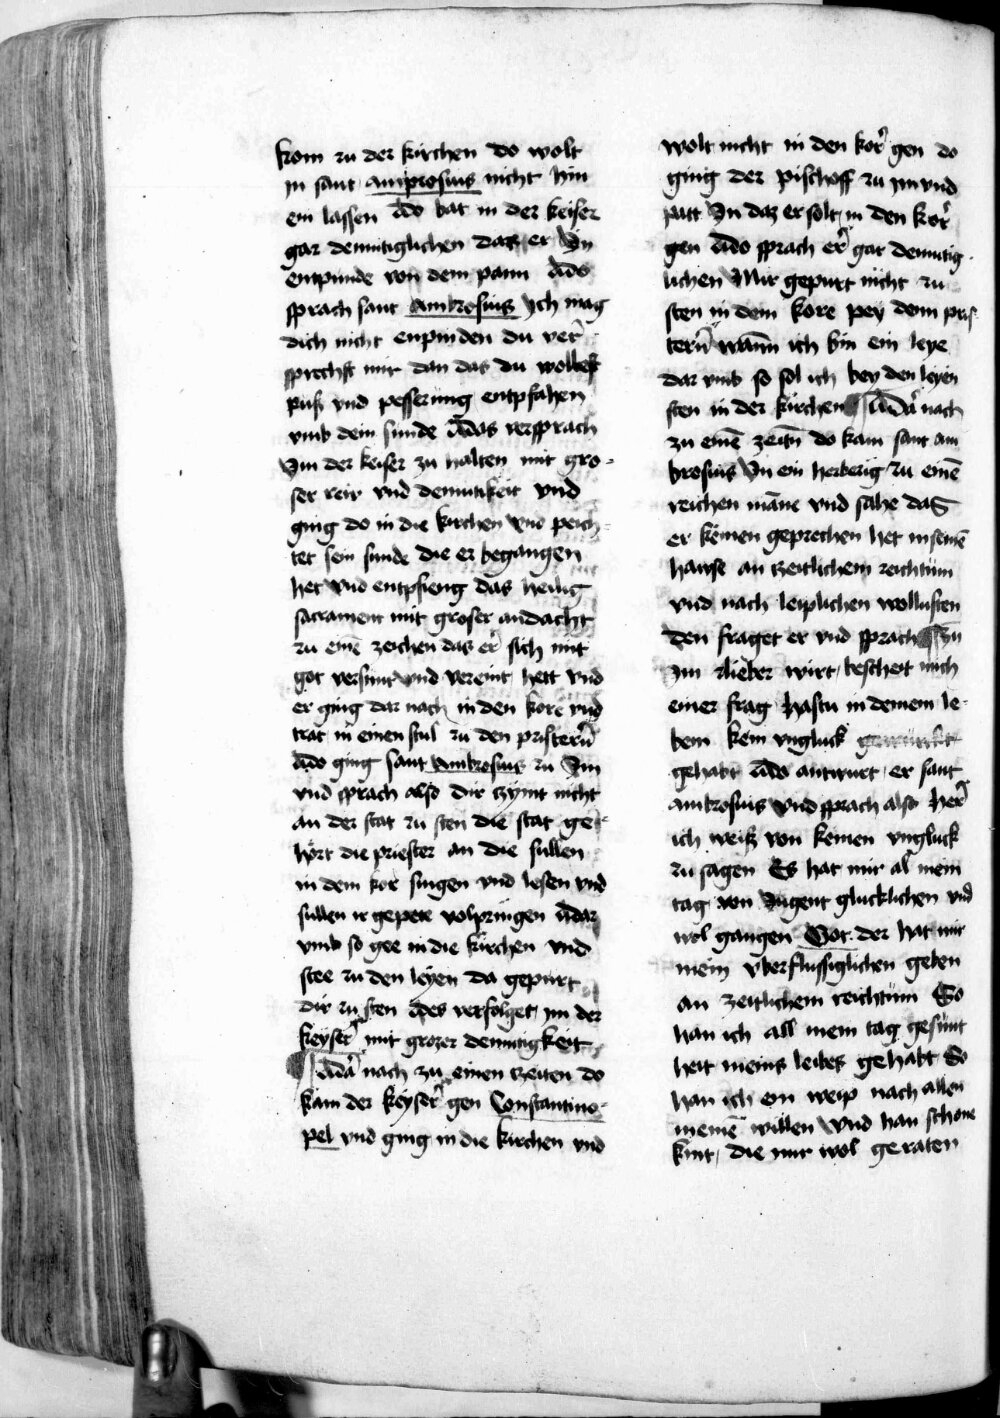 kom zu der kirchen do wolt
in sant amprosius nicht hin
ein lassen Ado bat in der keiser
gar demutiglichen daz er Jn
enpunde von dem pann Ado
sprach sant Ambrosius Jch mag
dich nicht enpinden du ver
sprechst mir dan das du wollest
puß vnd pesserung entpfahen
vmb dein sunde Adas versprach
Jm der keiser zu halten mit gro-
ser reiv vnd demutikeit vnd
ging do in die kirchen vnd peich-
tet sein sunde die er begangen
het vnd entpfieng das heilig
sacrament mit groser andacht
zu eine zeichen das er sich mit
got versünt vnd vereint hett vnd
er ging dar nach in den kore vnd
trat in einen stul zu den pristern
Ado ging sant Ambrosius zu Jm
vnd sprach also dir zymt nicht
an der stat zu sten die stat ge-
hört die priester an die sullen
in dem kor singen vnd lesen vnd
sullen ir gepete volpringen Adar
vmb so gee in die kirchen vnd
stee zu den leyen da gepurt
dir zu sten Ades verfolget im der
keyser mit grozer demutigkeit
Adar nach zu einen zeiten do
kam der keyser gen Constantino-
pel vnd ging in die kirchen vnd
wolt nicht in den kor gen do
ging der pischoff zu im vnd
patt Jn daz er solt in den kor
gen Ado sprach er gar demutig-
lichen Mir gepurt nicht zu
sten in dem kore pey dem pris-
tern wann ich bin ein leye
dar vmb so sol ich bey den leyen
sten in der kirchen Adar nach
zu eine zeitn do kam sant am
brosius Jn ein herberig zu eine
reichen mane vnd sahe das
er keinen geprechen het in seine
hawse an zeitlichem reichtum
vnd nach leiplichen wollusten
den fraget er vnd sprach zu
im lieber wirt bescheit mich
einer frag hastu in deinem le-
bem kein vngluck
gehabt Ado antwurt er sant
Ambrosius vnd sprach also her
ich weiß von keinen vngluck
zu sagen Es hat mir al mein
tag von Jugent glucklichen vnd
wol gangen Got der hat mir
mein vberflussiglichen geben
an zeitlichem reichtum So
han ich all mein tag gesunt
heit meins leibes gehabt So
han ich ein weip nach allen
meine willen vnd han schone
kint die mir wol geraten